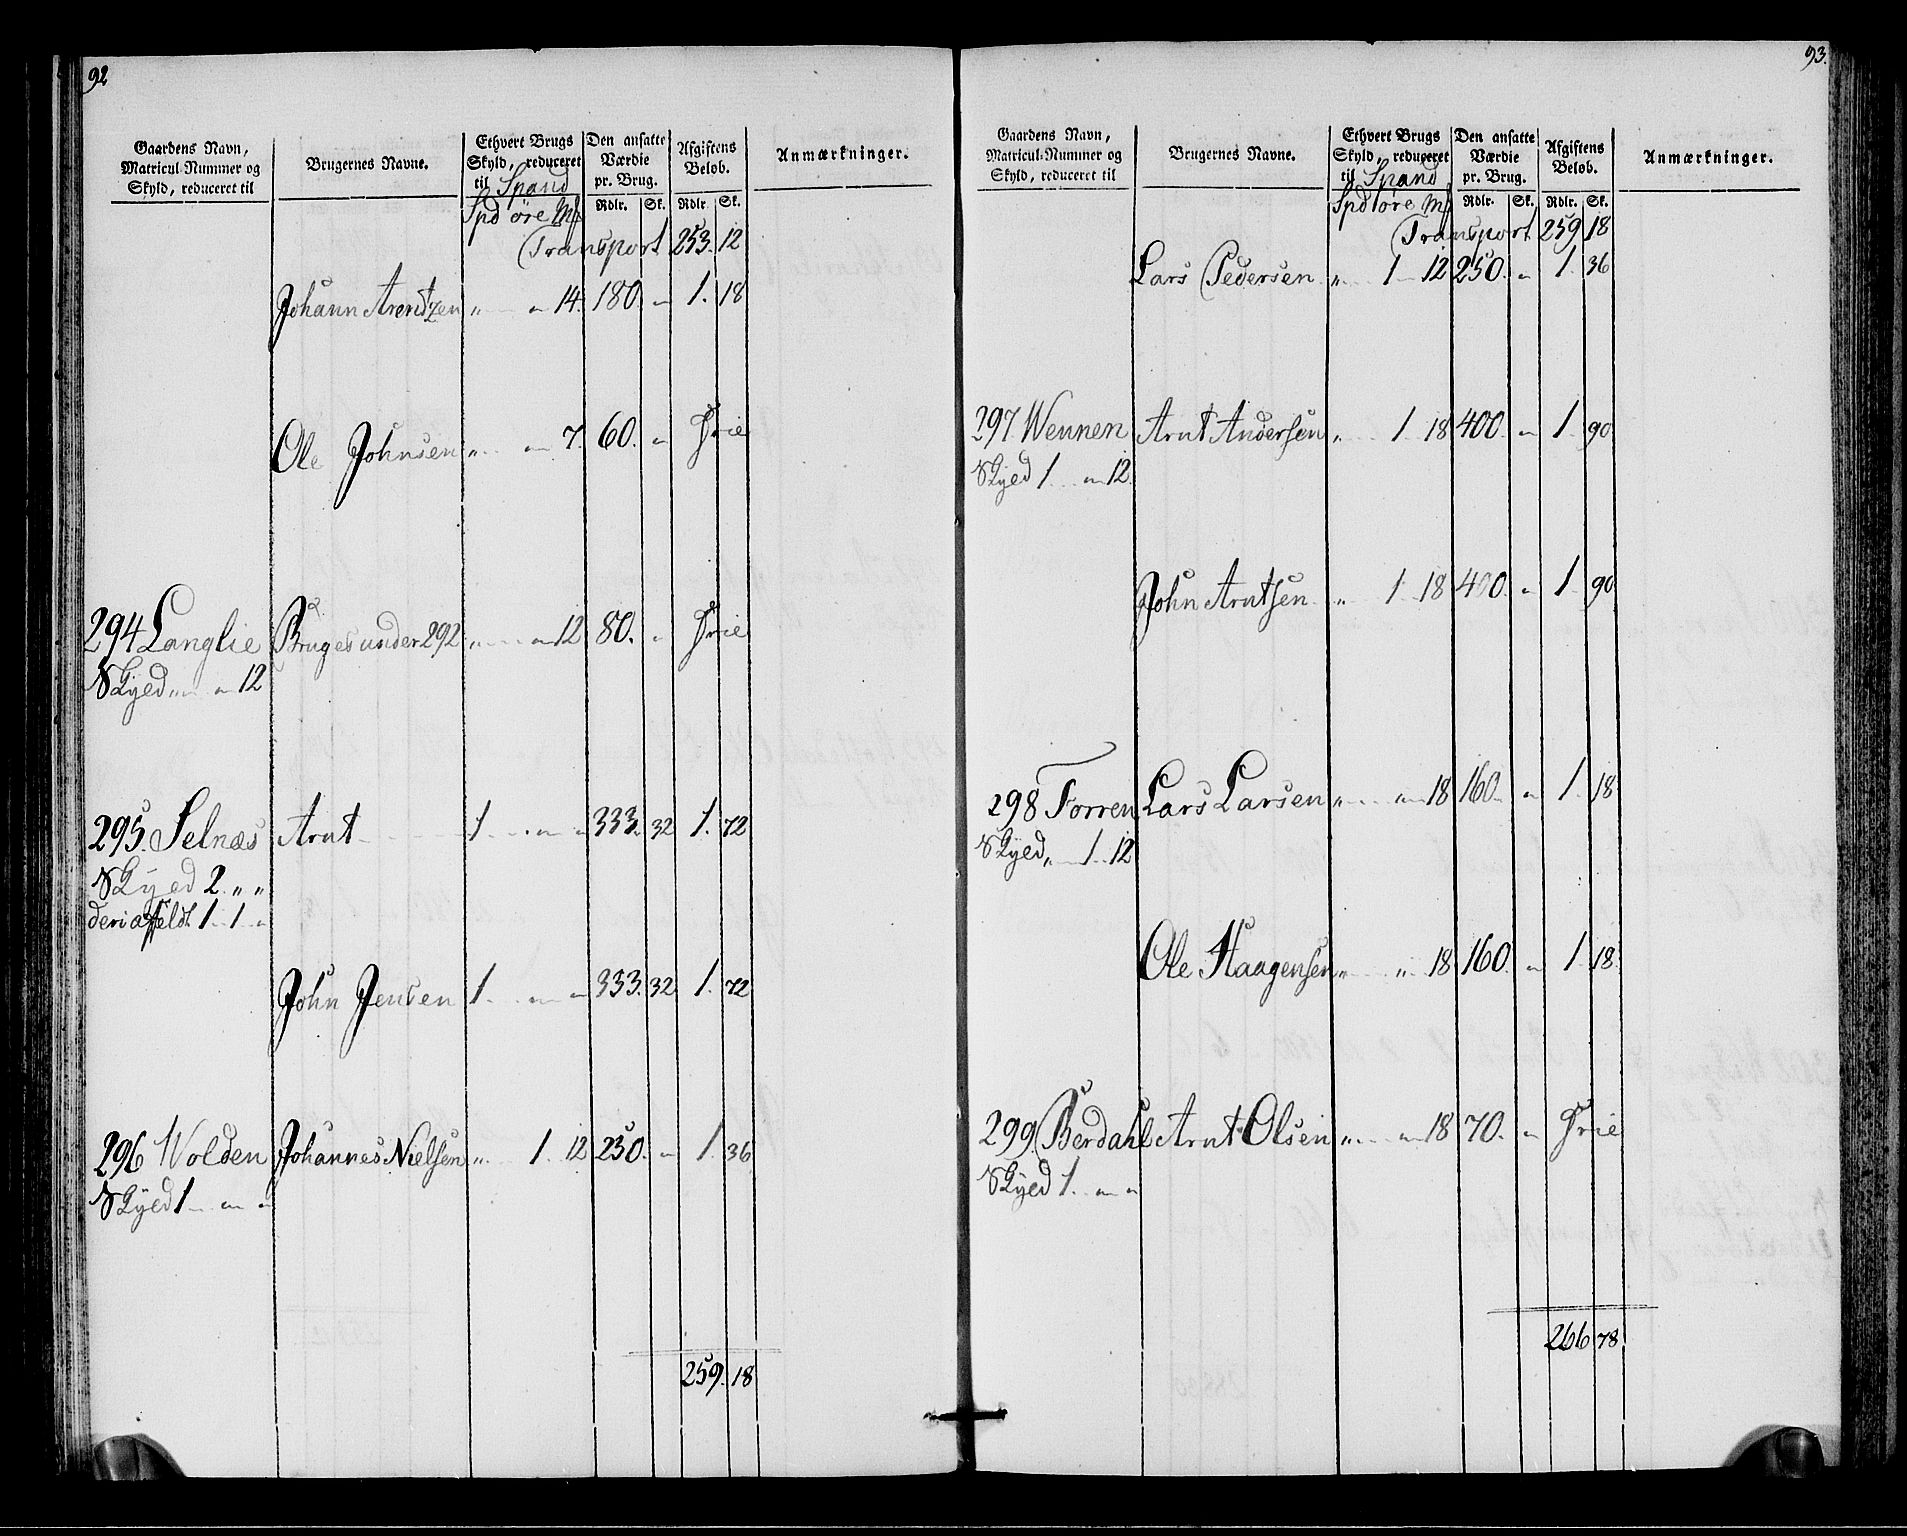 92
Gaardens Navn, Matricul-Nummer og Skyld, reduceret til | Brugernes Navne. | Ethvert Brugs Skyld, reduceret til Spand | Den ansatte Værdie pr. Brug. | Afgiftens Beløb. | Anmærkninger.
Spd öre Mf | Rdlr. | Sk. | Rdlr. | Sk.
Transport 253. 12
Johann Arentzen „ „ 14. 180. „ 1. 18
Ole Johnsen „ „ 7. 60. „ Frie
294 Langlie Bruges under 292 „ „ 12 80. „ Frie
Skyed „ „ 12
295. Selnæs Arnt 1 „ „ 333. 32 1. 72
Skyed 2. „ „
deriaffeldt 1 „ 1 „
John Jensen 1. „ „ 333. 32 1. 72
296 Wolden Johannes Nielsen „ 1. 12 250. „ 1. 36
Skyed 1 „ „
259. 18
93.
Gaardens Navn, Matricul-Nummer og Skyld, reduceret til | Brugernes Navne. | Ethvert Brugs Skyld, reduceret til Spand | Den ansatte Værdie pr. Brug. | Afgiftens Beløb. | Anmærkninger.
Spd öre Mf | Rdlr. | Sk. | Rdlr. | Sk.
Transport 259 18
Lars Pedersen „ 1 12 250. „ 1. 36
297 Wennen Arnt Andersen „ 1 18 400. „ 1. 90
Skyed 1. „ 12.
John Arntsen „ 1 18 400. „ 1. 90
298 Forren Lars Larsen „ „ 18 160. „ 1. 18
Skyed „ 1. 12
Ole Haagensen „ „ 18 160. „ 1. 18.
299. Berdahl Arnt Olsen „ „ 18 70. „ Frie
Skyed 1. „ „
266 78.